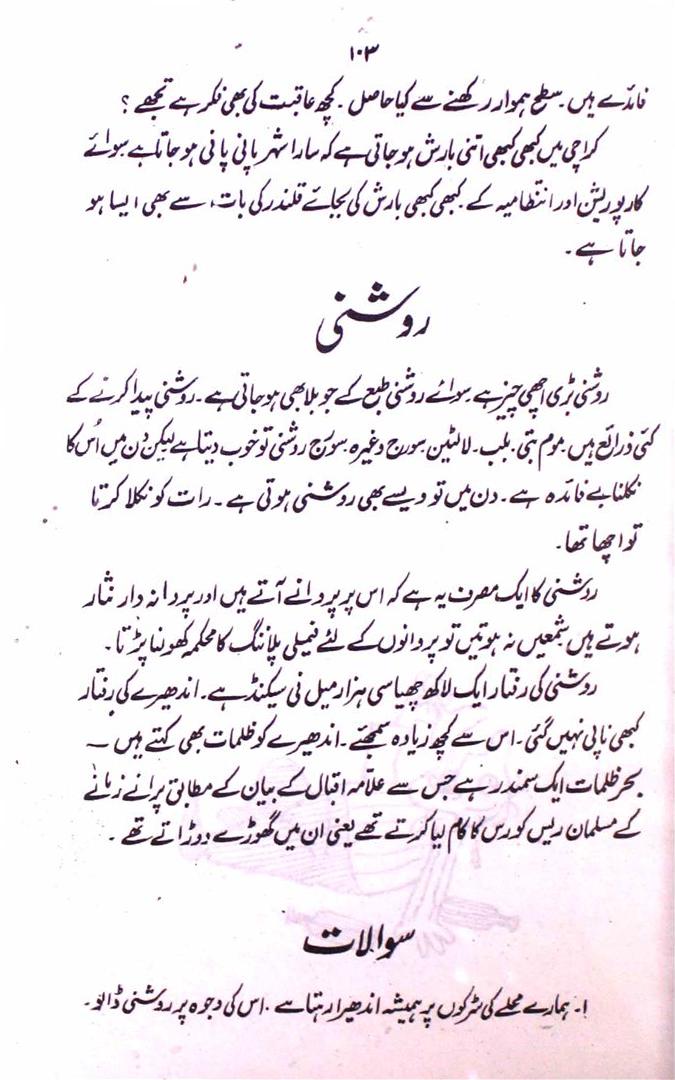 ۱۰۳
فائدے ہیں۔ سطح ہموار رکھنے سے کیا حاصل۔ کچھ عاقبت کی بھی فکر ہے تجھے؟
کراچی میں کبھی کبھی اتنی بارش ہو جاتی ہے کہ سارا شہر پانی پانی ہو جاتا ہے سوائے
کارپوریشن اور انتظامیہ کے۔ کبھی کبھی بارش کی بجائے قلندر کی بات، سے بھی ایسا ہو
جاتا ہے۔
روشنی
روشنی بڑی اچھی چیز ہے سوائے روشنی طبع کے جو بلا بھی ہو جاتی ہے۔ روشنی پیدا کرنے کے
کئی ذرائع ہیں۔ موم بتی۔ بلب۔ لالٹین۔ سورج وغیرہ۔ سورج روشنی تو خوب دیتا ہے لیکن دن میں اُس کا
نکلنا بے فائدہ ہے۔ دن میں تو ویسے بھی روشنی ہوتی ہے۔ رات کو نکلا کرتا
تو اچھا تھا۔
روشنی کا ایک مصرف یہ ہے کہ اس پر پروانے آتے ہیں اور پروانہ وار نثار
ہوتے ہیں۔ شمعیں نہ ہوتیں تو پروانوں کے لئے فیملی پلاننگ کا محکمہ کھولنا پڑتا۔
روشنی کی رفتار ایک لاکھ چھیاسی ہزار میل فی سیکنڈ ہے۔ اندھیرے کی رفتار
کبھی ناپی نہیں گئی۔ اس سے کچھ زیادہ سمجھئے۔ اندھیرے کو ظلمات بھی کہتے ہیں —
بحر ظلمات ایک سمندر ہے جس سے علّامہ اقبال کے بیان کے مطابق پرانے زمانے
کے مسلمان ریس کورس کا کام لیا کرتے تھے یعنی ان میں گھوڑے دوڑاتے تھے۔
سوالات
۱۔ ہمارے محلے کی سڑکوں پر ہمیشہ اندھیرا رہتا ہے۔ اس کی وجوہ پر روشنی ڈالو۔